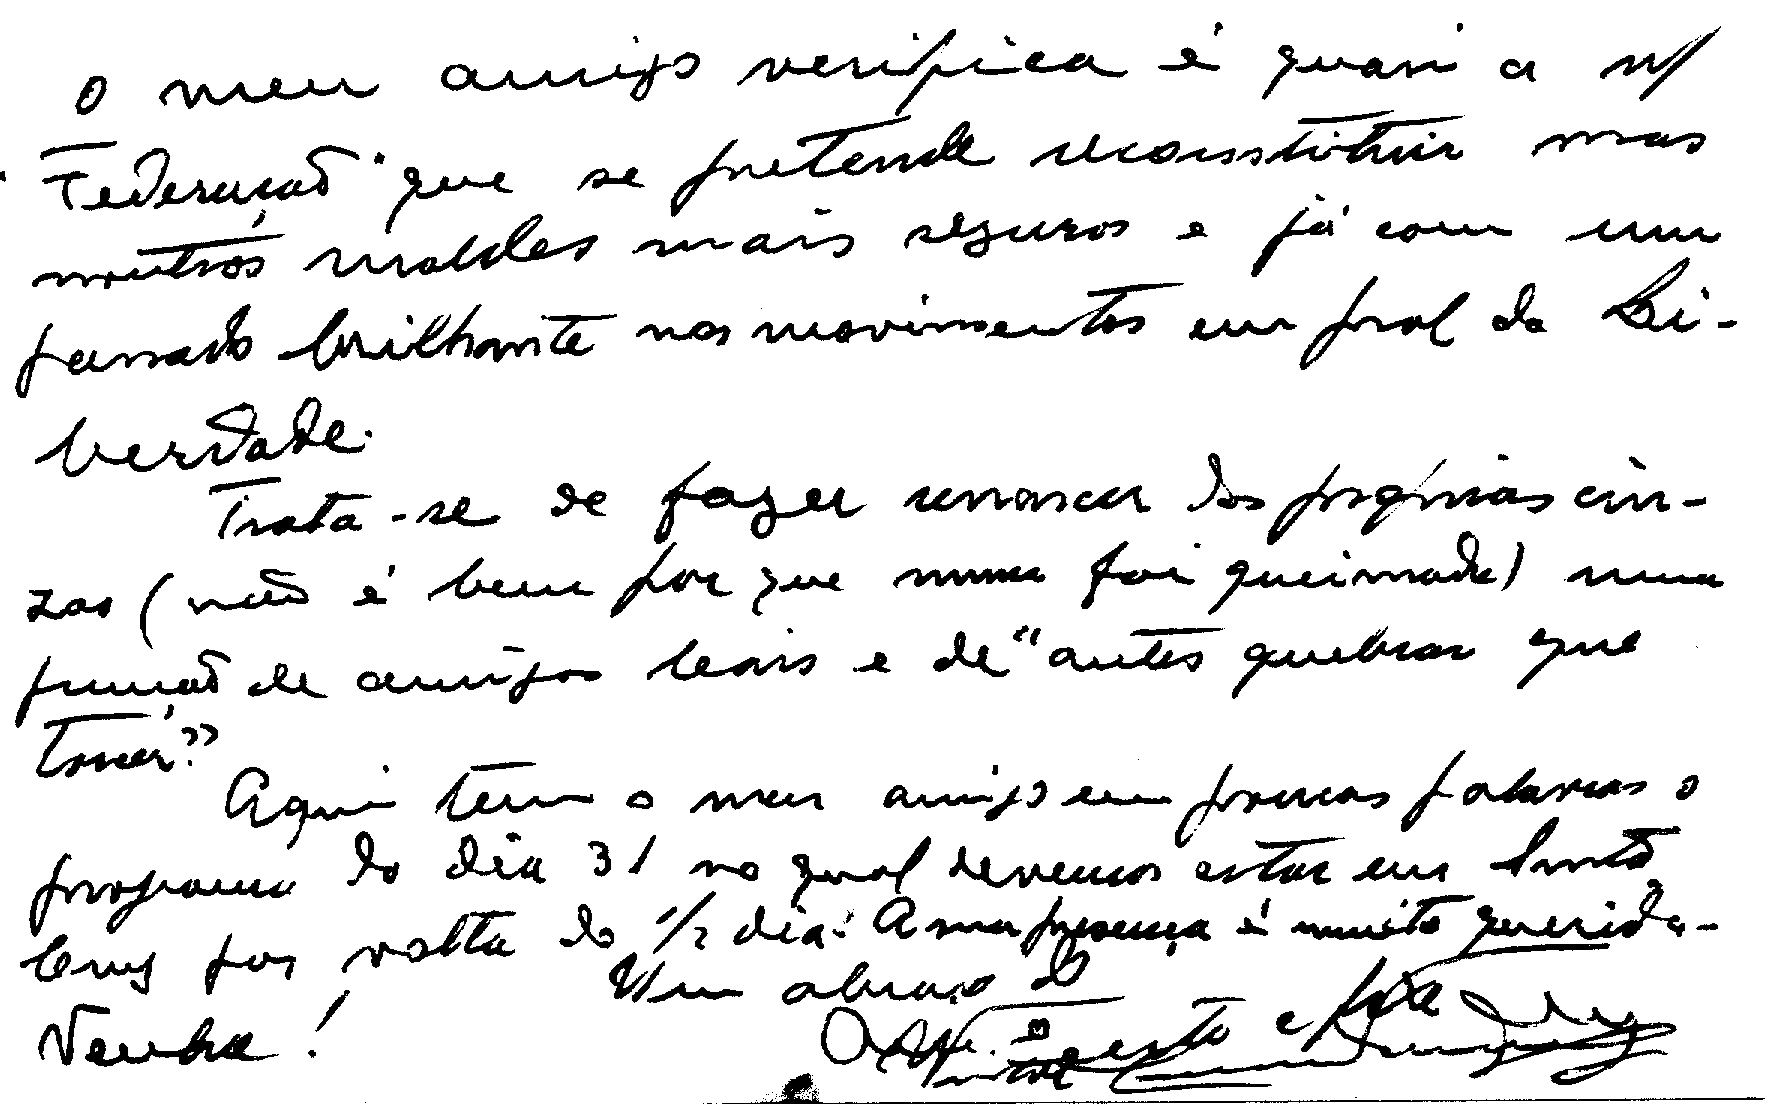 O meu amigo verifica é quasi a n/
Federação que se pretende reconstituir mas
noutros moldes mais seguros e já com um
passado brilhante nos movimentos em prol da Li-
berdade.
Trata-se de fazer renascer das próprias cin-
zas (não é bem por que nunca foi queimada) uma
função de amigos leais e de "antes quebrar que
torcer"
Aqui tem o meu amigo em poucas palavras o
programa do dia 31 no qual devemos estar em Santa
Cruz por volta do 1/2 dia. A sua presença é muito querida.-
Venha!
Um abraço do